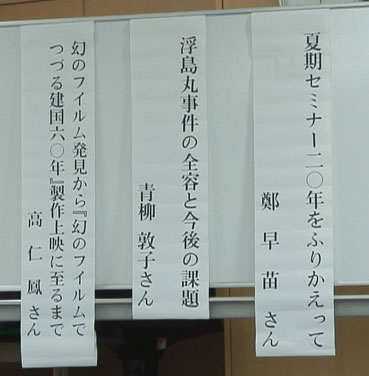 夏期セミナー二〇年をふりかえって
鄭 早 苗 さん
浮島丸事件の全容と今後の課題
青柳 敦子さん
幻のフイルム発見から『幻のフイルムで
つづる建国六〇年』製作上映に至るまで
高 仁 鳳 さん